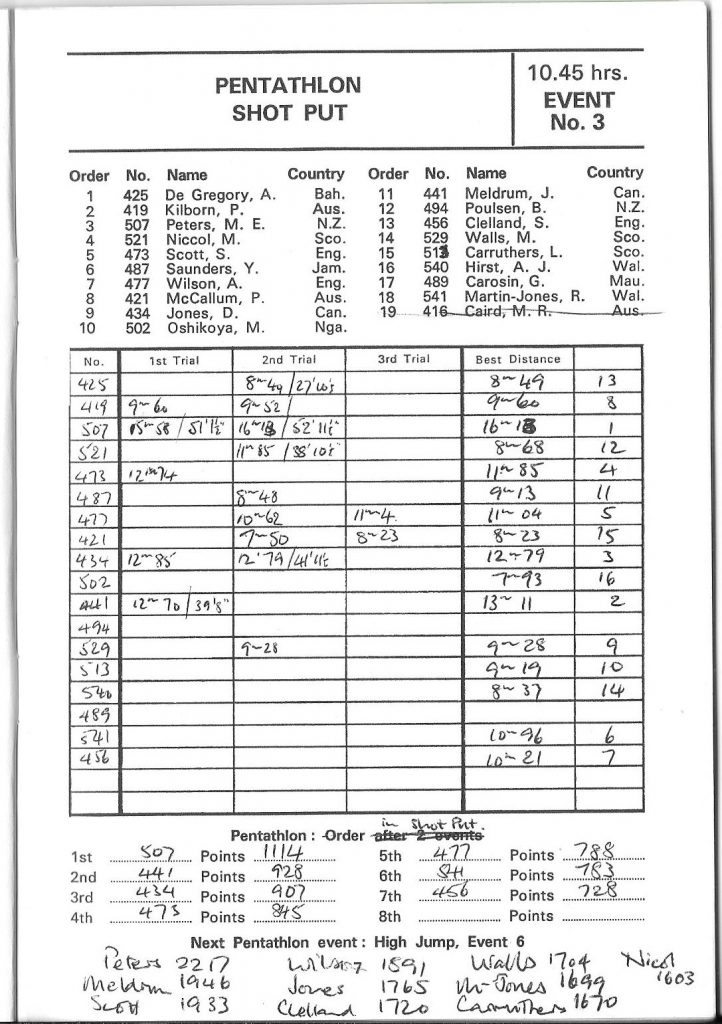 PENTATHLON
SHOT PUT
10.45 hrs.
EVENT
No. 3
Order No. Name Country Order No. Name Country
1 425 De Gregory, A. Bah. 11 441 Meldrum, J. Can.
2 419 Kilborn, P. Aus. 12 494 Poulsen, B. N.Z.
3 507 Peters, M. E. N.Z. 13 456 Clelland, S. Eng.
4 521 Niccol, M. Sco. 14 529 Walls, M. Sco.
5 473 Scott, S. Eng. 15 513 Carruthers, L. Sco.
6 487 Saunders, Y. Jam. 16 540 Hirst, A. J. Wal.
7 477 Wilson, A. Eng. 17 489 Carosin, G. Mau.
8 421 McCallum, P. Aus. 18 541 Martin-Jones, R. Wal.
9 434 Jones, D. Can. 19 416 Caird, M. R. Aus.
10 502 Oshikoya, M. Nga.
No. 1st Trial 2nd Trial 3rd Trial Best Distance
425 8m 49 / 27'10½ 8m 49 13
419 9m 60 9m 52 / 9m 60 8
507 15m 58 / 51'1½" 16m 18 / 52'11½" 16m 18 1
521 11m 85 / 38'10½" 8m 68 12
473 12m 74 11m 85 4
487 8m 48 9m 13 11
477 10m 62 11m 4 11m 04 5
421 7m 50 8m 23 8m 23 15
434 12m 85 12'79 / 41'11½ 12m 79 3
502 7m 93 16
441 12m 70 / 39'8" 13m 11 2
494
529 9m 28 9m 28 9
513 9m 19 10
540 8m 37 14
489
541 10m 96 6
456 10m 21 7
in Shot Put.
Pentathlon : Order after 2 events
1st 507 Points 1114 5th 477 Points 788
2nd 441 Points 928 6th 541 Points 783
3rd 434 Points 907 7th 456 Points 728
4th 473 Points 845 8th Points
Next Pentathlon event : High Jump, Event 6
Peters 2217 Wilson 1891 Walls 1704 Nicol 1603
Meldrum 1946 Jones 1765 M-Jones 1699
Scott 1933 Clelland 1720 Carruthers 1670